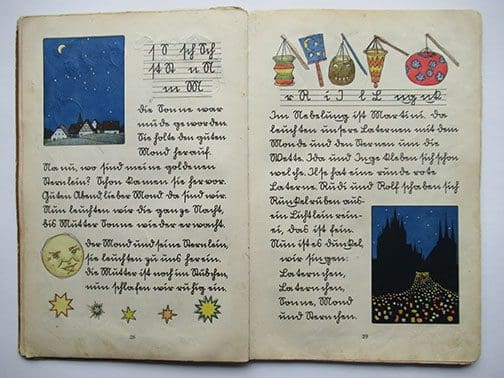 s S sch Sch
st St n N
m M
die Sonne war
müde geworden.
Sie holte den guten
Mond herauf.
Na nu, wo sind meine goldenen
Sternlein? Schon kamen sie hervor.
Guten Abend, lieber Mond, da sind wir.
Nun leuchten wir die ganze Nacht,
bis Mutter Sonne wieder erwacht.
der Mond und seine Sternlein,
sie leuchten zu uns herein.
die Mutter ist noch im Stübchen,
nun schlafen wir ruhig ein.
28
r R i I l L ng nk
Im Nebelung ist Martini. da
leuchten unsere Laternen mit dem
Monde und den Sternen um die
Wette. Ida und Inge kleben sich schon
welche. Ilse hat eine runde rote
Laterne. Rudi und Rolf schaben sich
Runkelrüben aus-
ein Lichtlein rein-
ei, das ist fein.
Nun ist es dunkel,
wir singen:
Laternchen,
Laternchen,
Sonne, Mond
und Sternchen.
29